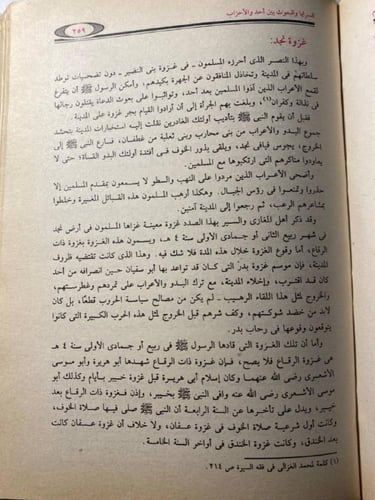 السرايا والبعوث بين أحد والأحزاب
٢٥٩
غزوة نجد:
وبهذا النصر الذي أحرزه المسلمون ـ في غزوة بني النضير ـ دون تضحيات توطد
سلطانهم في المدينة وتخاذل المنافقون عن الجهرة بكيدهم، وأمكن الرسول ﷺ أن يتفرغ
لقمع الأعراب الذين آذوا المسلمين بعد أحد، وتواثبوا على بعوث الدعاة يقتلون رجالها
في نذالة وكفران(١)، وبلغت بهم الجرأة إلى أن أرادوا القيام بجر غزوة على المدينة.
فقبل أن يقوم النبي ﷺ بتأديب أولئك الغادرين نقلت إليه استخبارات المدينة بتحشد
جموع البدو والأعراب من بني محارب وبني ثعلبة من غطفان، فسارع النبي ﷺ إلى
الخروج، يجوس فيافي نجد، ويلقي بذور الخوف في أفئدة أولئك البدو القساة؛ حتى لا
يعاودوا مناكرهم التي ارتكبوها مع المسلمين.
وأضحى الأعراب الذين مردوا على النهب والسطو لا يسمعون بمقدم المسلمين إلا
حذروا وتمنعوا في رؤس الجبال. وهكذا أرهب المسلمون هذه القبائل المغيرة وخلطوا
بمشاعرهم الرعب، ثم رجعوا إلى المدينة آمنين.
وقد ذكر أهل المغازي والسير بهذا الصدد غزوة معينة غزاها المسلمون في أرض نجد
في شهر ربيع الثاني أو جمادي الأولى سنة ٤ هـ، ويسمون هذه الغزوة بغزوة ذات
الرقاع، أما وقوع الغزوة خلال هذه المدة فلا شك فيه. وهذا الذي كانت تقتضيه ظروف
المدينة، فإن موسم غزوة بدر التي كان قد تواعد بها أبو سفيان حين انصرافه من أحد
كان قد اقترب، وإخلاء المدينة، مع ترك البدو والأعراب على تمردهم وغطرستهم،
والخروج لمثل هذا اللقاء الرهيب ـ لم يكن من مصالح سياسة الحروب قطعًا، بل كان
لابد من خضد شوكتهم، وكف شرهم قبل الخروج لمثل هذه الحرب الكبيرة التي كانوا
يتوقعون وقوعها في رحاب بدر.
وأما أن تلك الغزوة التي قادها الرسول ﷺ في ربيع أو جمادي الأولى سنة ٤ هـ
هي غزوة الرقاع فلا يصح، فإن غزوة ذات الرقاع شهدها أبو هريرة وأبو موسى
الأشعري رضي الله عنهما وكان إسلام أبي هريرة قبل غزوة خيبر بأيام وكذلك أبو
موسى الأشعري رضي الله عنه وافى النبي ﷺ بخيبر، وإذن فغزوة ذات الرقاع بعد
خيبر، ويدل على تأخرها عن السنة الرابعة أن النبي ﷺ صلى فيها صلاة الخوف،
وكانت أول شرعية صلاة الخوف في غزوة عسفان، ولا خلاف أن غزوة عسفان كانت
بعد الخندق، وكانت غزوة الخندق في أواخر السنة الخامسة.
(١) كلمة لمحمد الغزالي في فقه السيرة ص ٢١٤.